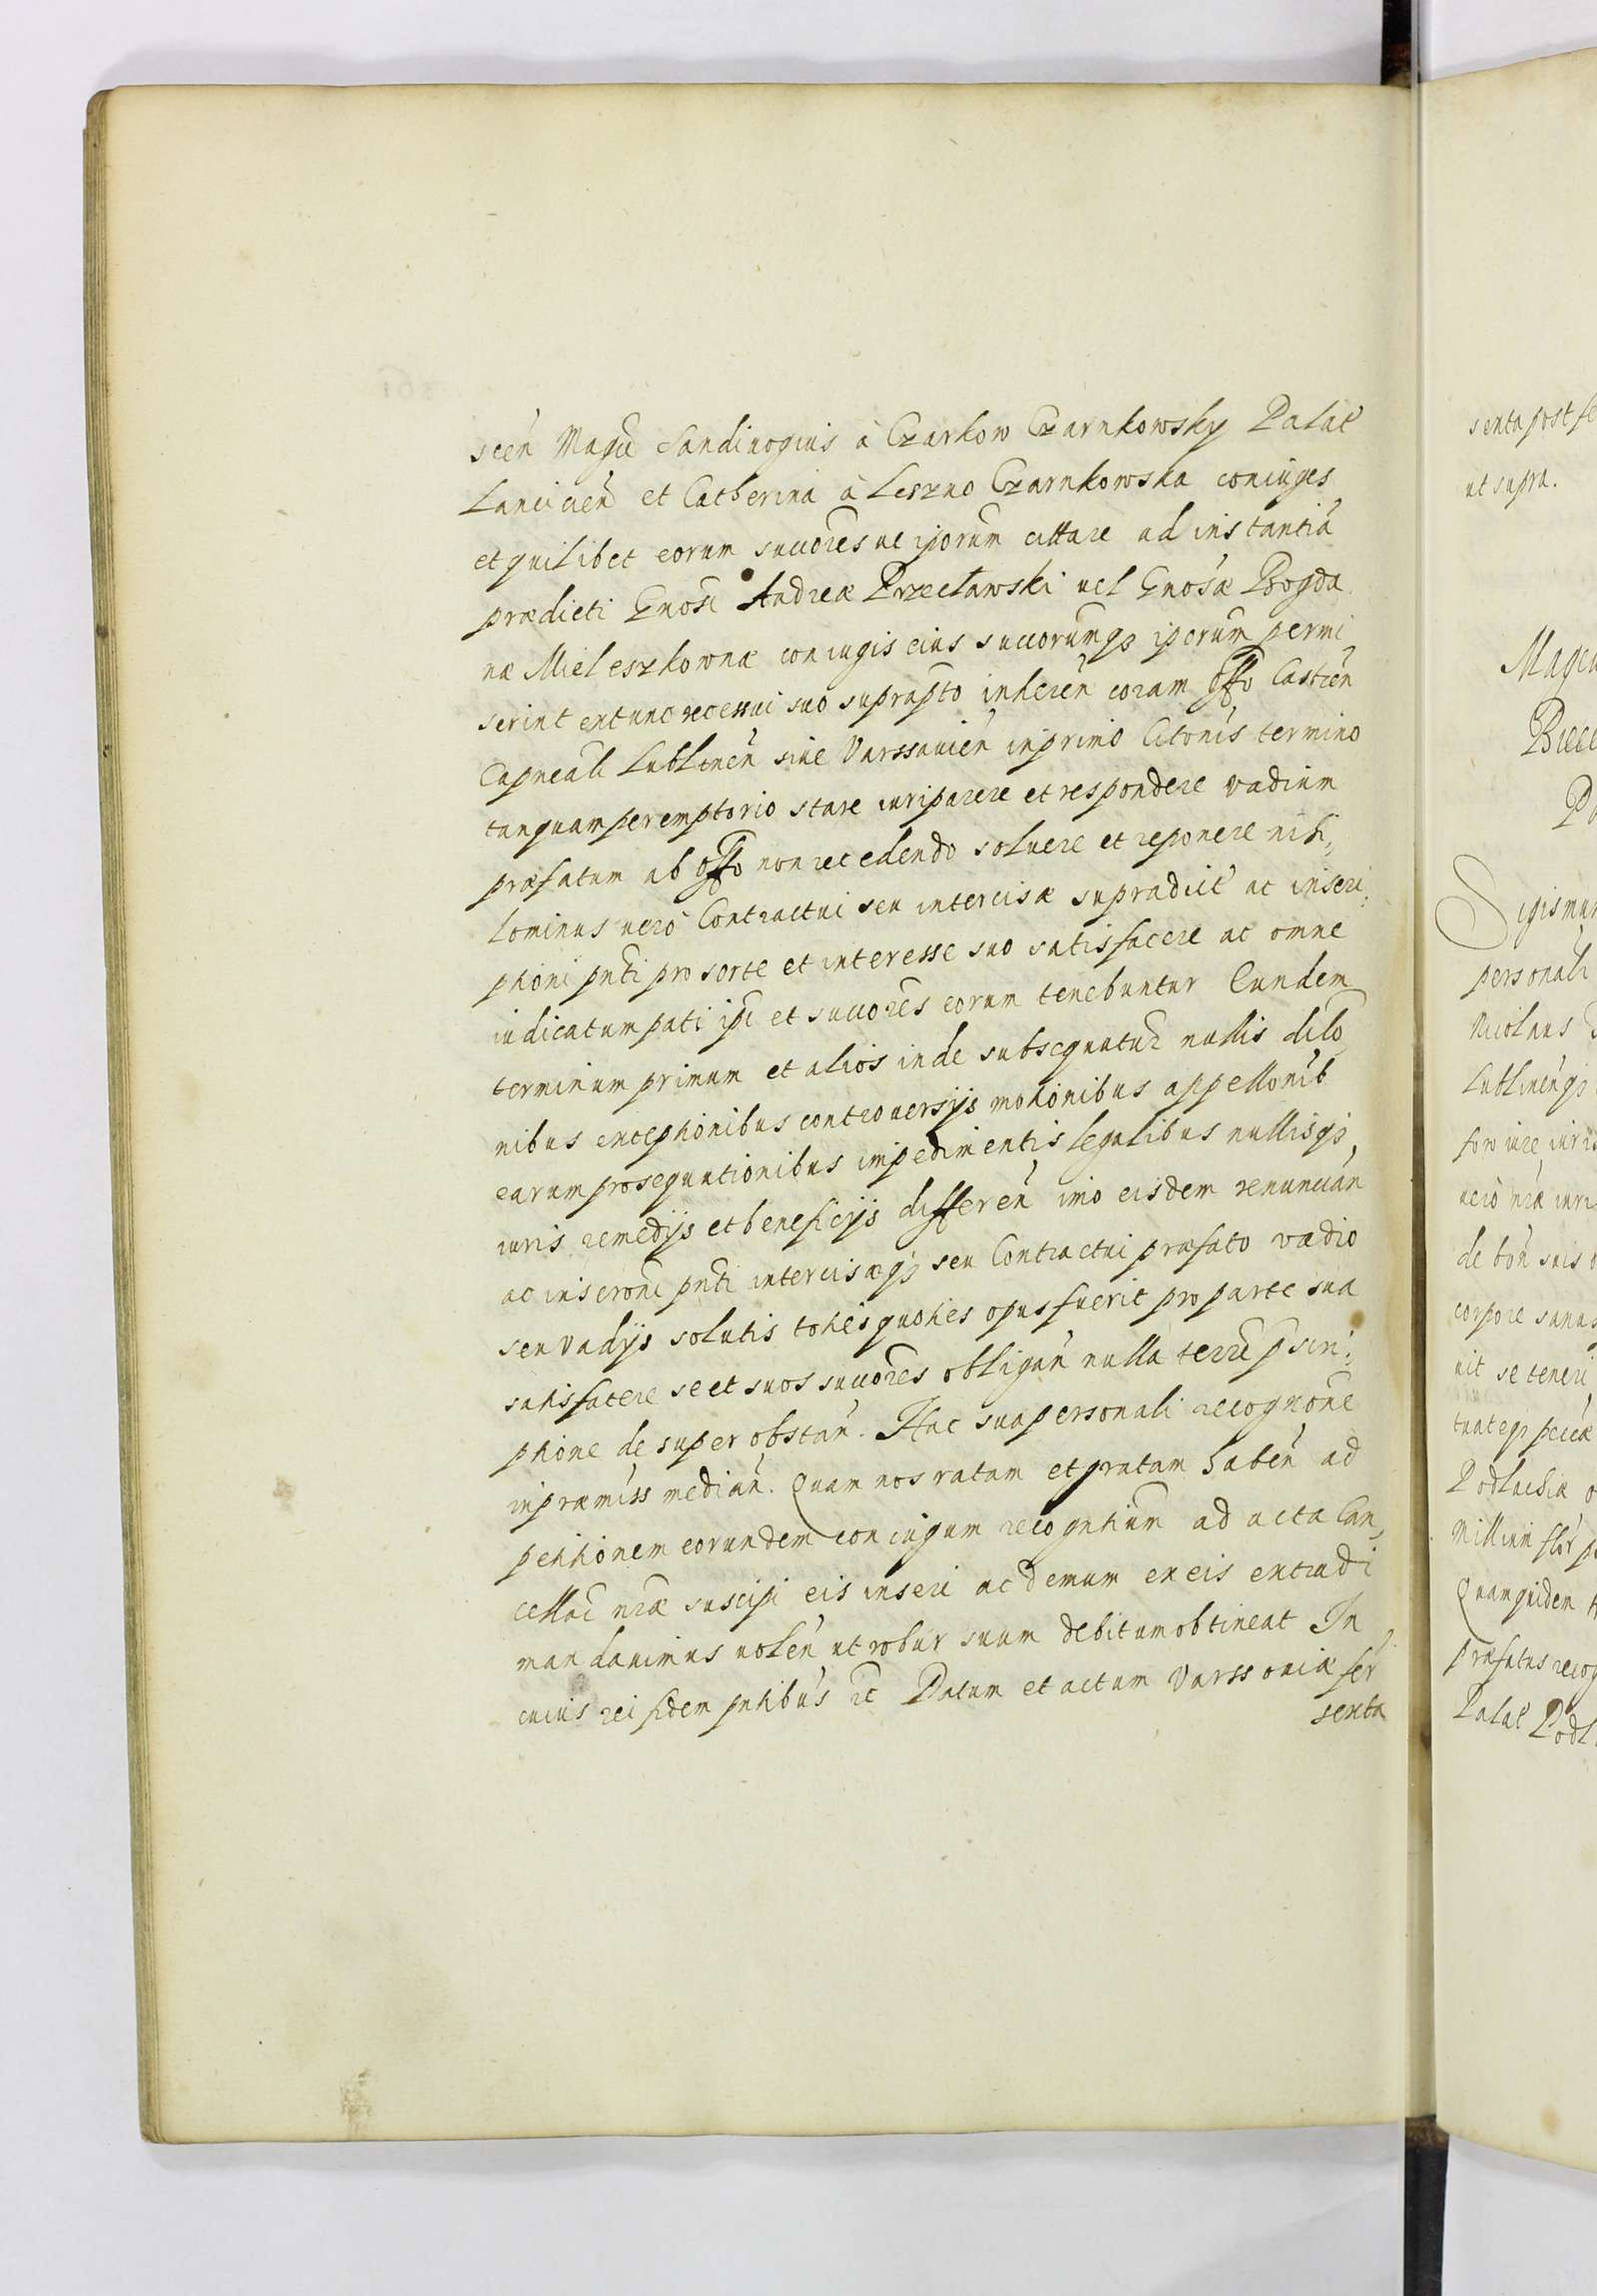 scen̄ Magci Sandiuogius à Czarkow Czarnkowsky Palat̄
Lancicien̄ et Catherina à Leszno Czarnkowska coniuges
et quilibet eorum succōres ac ip̄orum cittare ad instantiā
prædicti Gnosi Andreæ Przecławski uel Gnosæ Bogda
næ Mieleszkownæ coniugis eius succorumqȝ ip̄orum permi
serint extunc recessui suo suprapto inheren̄ coram Offo Castren̄
Capneali Lublinen̄ siue Varssauien̄ in primo Citōnis termino
tanquam peremptorio stare iuri parere et respondere vadium
præfatum ab Offo non recedendo soluere et reponere nihi„
lominus uerò Contractui seu intercisæ supradict̄ ac inscri„
ptioni pn̄ti pro sorte et interesse suo satisfacere ac omne
iudicatum pati ip̄i et succōres eorum tenebuntur Eundem
terminum primum et alios inde subsequutur̄ nullis dilō
nibus exceptionibus controuersijs motionibus appellōnib
earum prosequutionibus impedimentis legalibus nullisqȝ
iuris remedijs et beneficijs differen̄ imo eisdem renuncian̄
ac inscrōni pn̄ti intercisæqȝ seu Contractui præfato vadio
seu vadijs solutis toties quoties opus fuerit pro parte sua
satisfacere se et suos succōres obligan̄ nulla terrē pscri„
ptione desuper obstan̄. Hac sua personali recognōne
in præmiss median̄. Quam nos ratam et gratam haben̄ ad
petitionem eorundem coniugum recogntium̄ ad acta Can„
cellac̄ nr̄æ suscipi eis inseri ac demum ex eis extradi
mandauimus uolen̄ ut robur suum debitum obtineat In
cuius rei fidem pn̄tibus etc̄ Datum et actum Varssouiæ fer̄
sexta
senta post fe
ut supra.
Magcu
Biece
Po
Sigismun
personali
Nicolaus
Lublinen̄qȝ
foro iure iuris
uerò nr̄æ iuri
de bon̄ suis o
corpore sanus
uit se teneri
tuateqȝ peccæ
Podlachiæ o
Millium flor̄ po
Quamquidem
præfatus recog
Palat̄ Podl